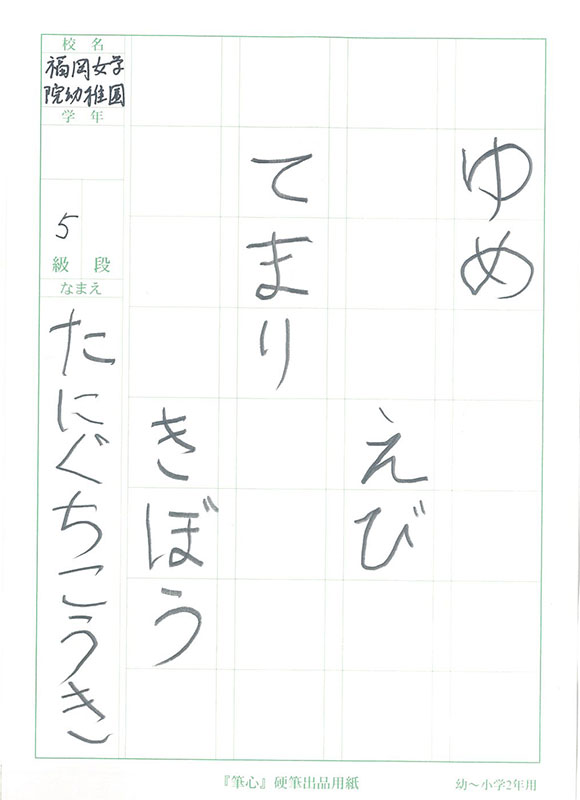 ゆめ
えび
てまり
きぼう
校名
福岡女学
院幼稚園
学年
5
級段
なまえ
たにぐちこうき
『筆心』硬筆出品用紙
幼〜小学2年用